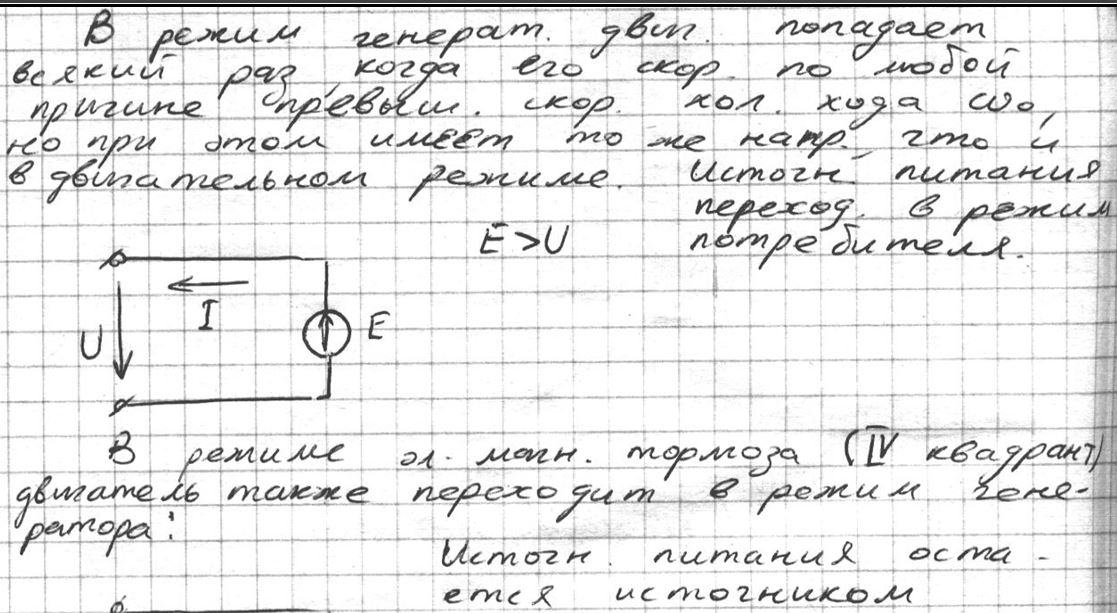 В режим генерат. двиг. попадает
всякий раз, когда его скор. по любой
причине превыш. скор. хол. хода ω₀,
но при этом имеет то же напр., что и
в двигательном режиме. Источн. питания
переход. в режим
E > U потребителя.
I
U
E
В режиме эл. магн. тормоза (IV квадрант)
двигатель также переходит в режим гене-
ратора:
Источн. питания оста-
ется источником